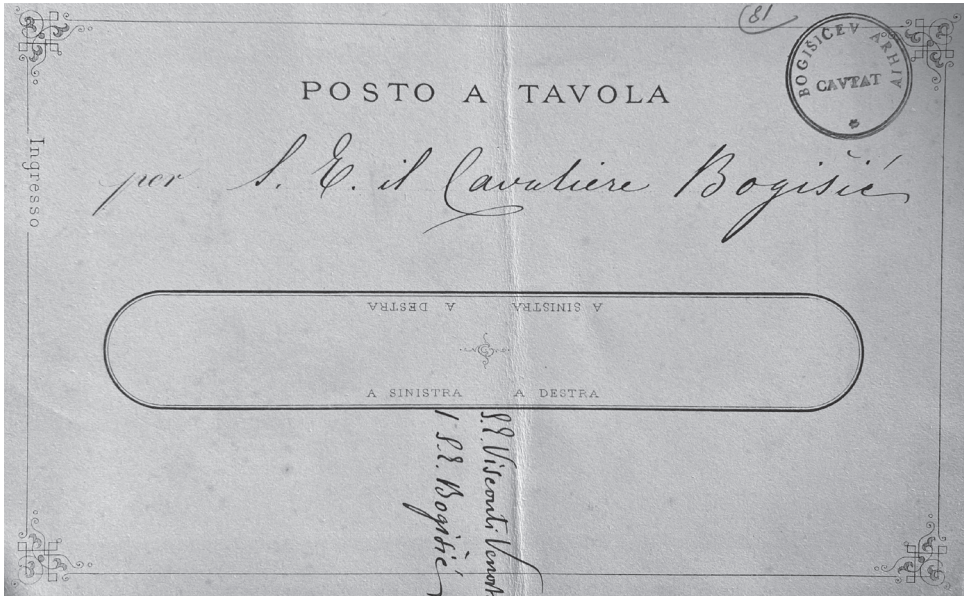 81
BOGIŠIĆEV ARHIV
CAVTAT
POSTO A TAVOLA
per S. E. il Cavaliere Bogišić
Ingresso
A SINISTRA A DESTRA
A SINISTRA A DESTRA
S. E. Visconti Venosta
1 S. E. Bogišić